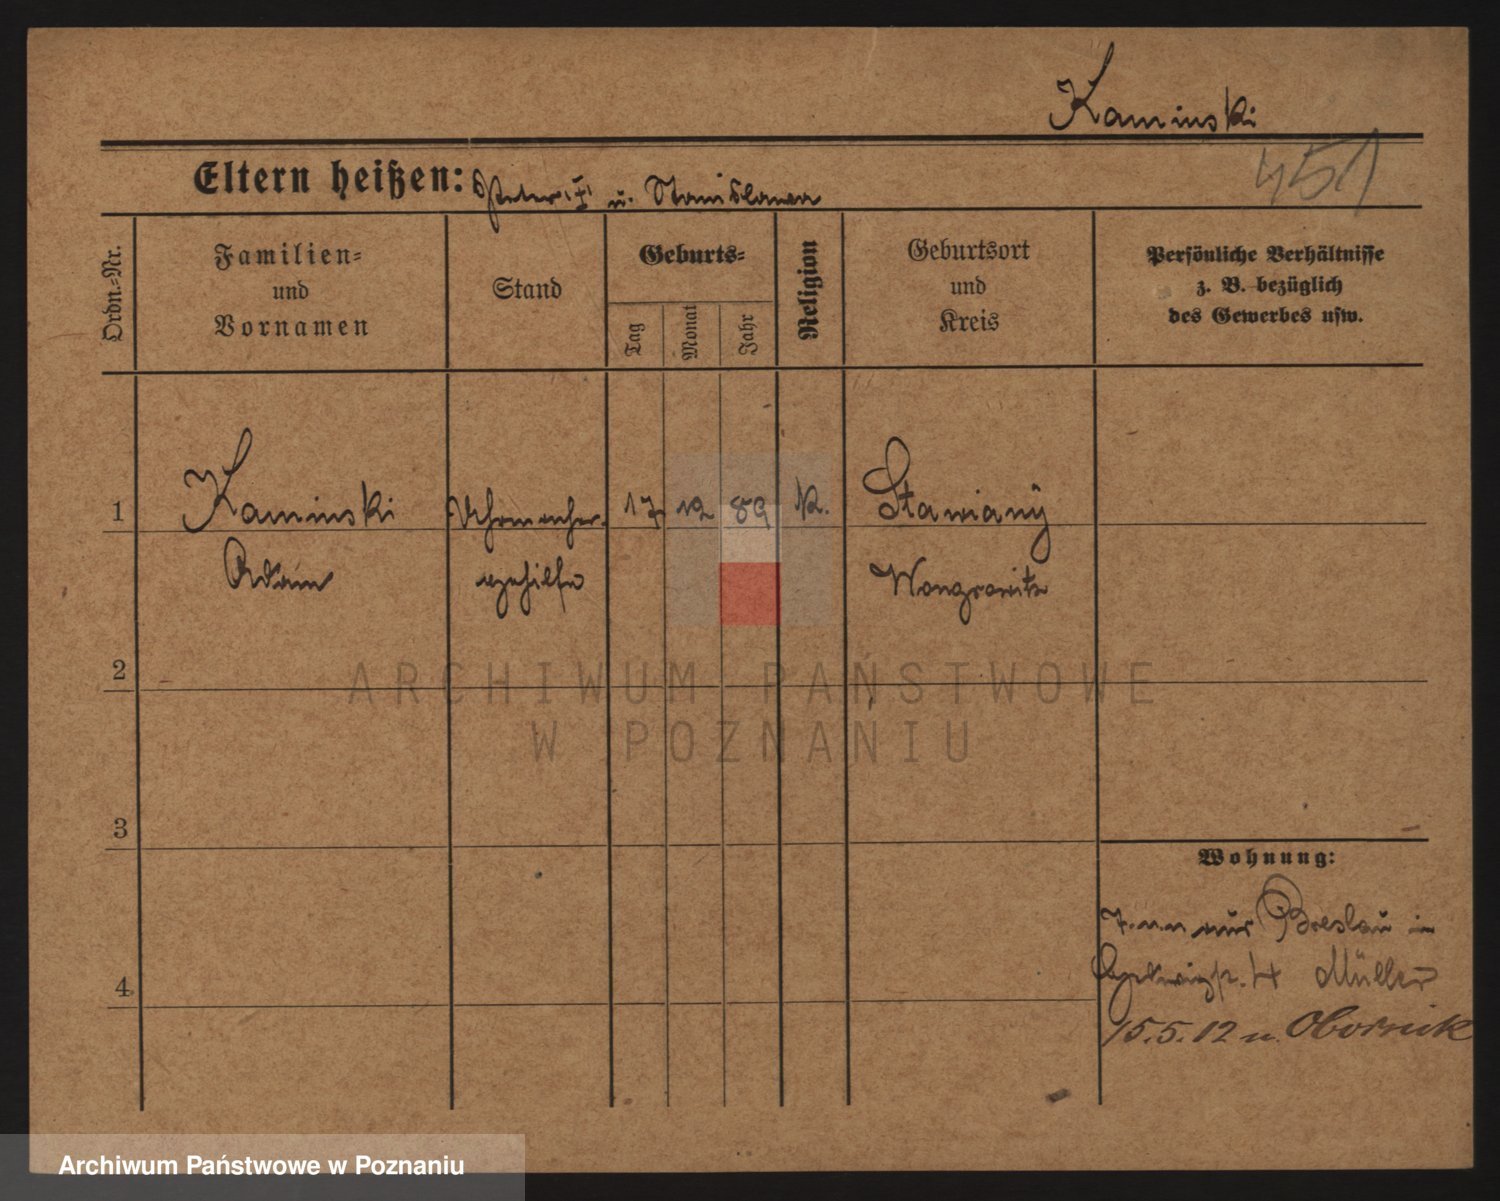 Kaminski
451
Eltern heißen: Peter u. Stanislawa
Ordn.-Nr.
Familien-
und
Vornamen
Stand
Geburts-
Tag
Monat
Jahr
Religion
Geburtsort
und
Kreis
Persönliche Verhältnisse
z. B. bezüglich
des Gewerbes usw.
1
Kaminski Uhrmacher- 17 12 89 k. Stawiany
Adam gehilfe Wongrowitz
2
ARCHIWUM PAŃSTWOWE
W POZNANIU
3
Wohnung:
aus Breslau in
4 Müller
15.5.12 n. Obornik
4
Archiwum Państwowe w Poznaniu